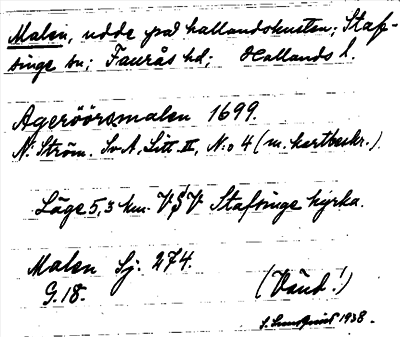 Malen, udde på hallandskusten; Staf-
singe sn; Faurås hd; Hallands l.
Ageröörsmalen 1699.
N. Ström. Sv. A, Litt. II, No 4 (m. kartbeskr.).
Läge 5,3 km. V§V Stafsinge kyrka.
Malen Sj. 274.
G. 18. (Vänd!)
S. Lundquist 1938.